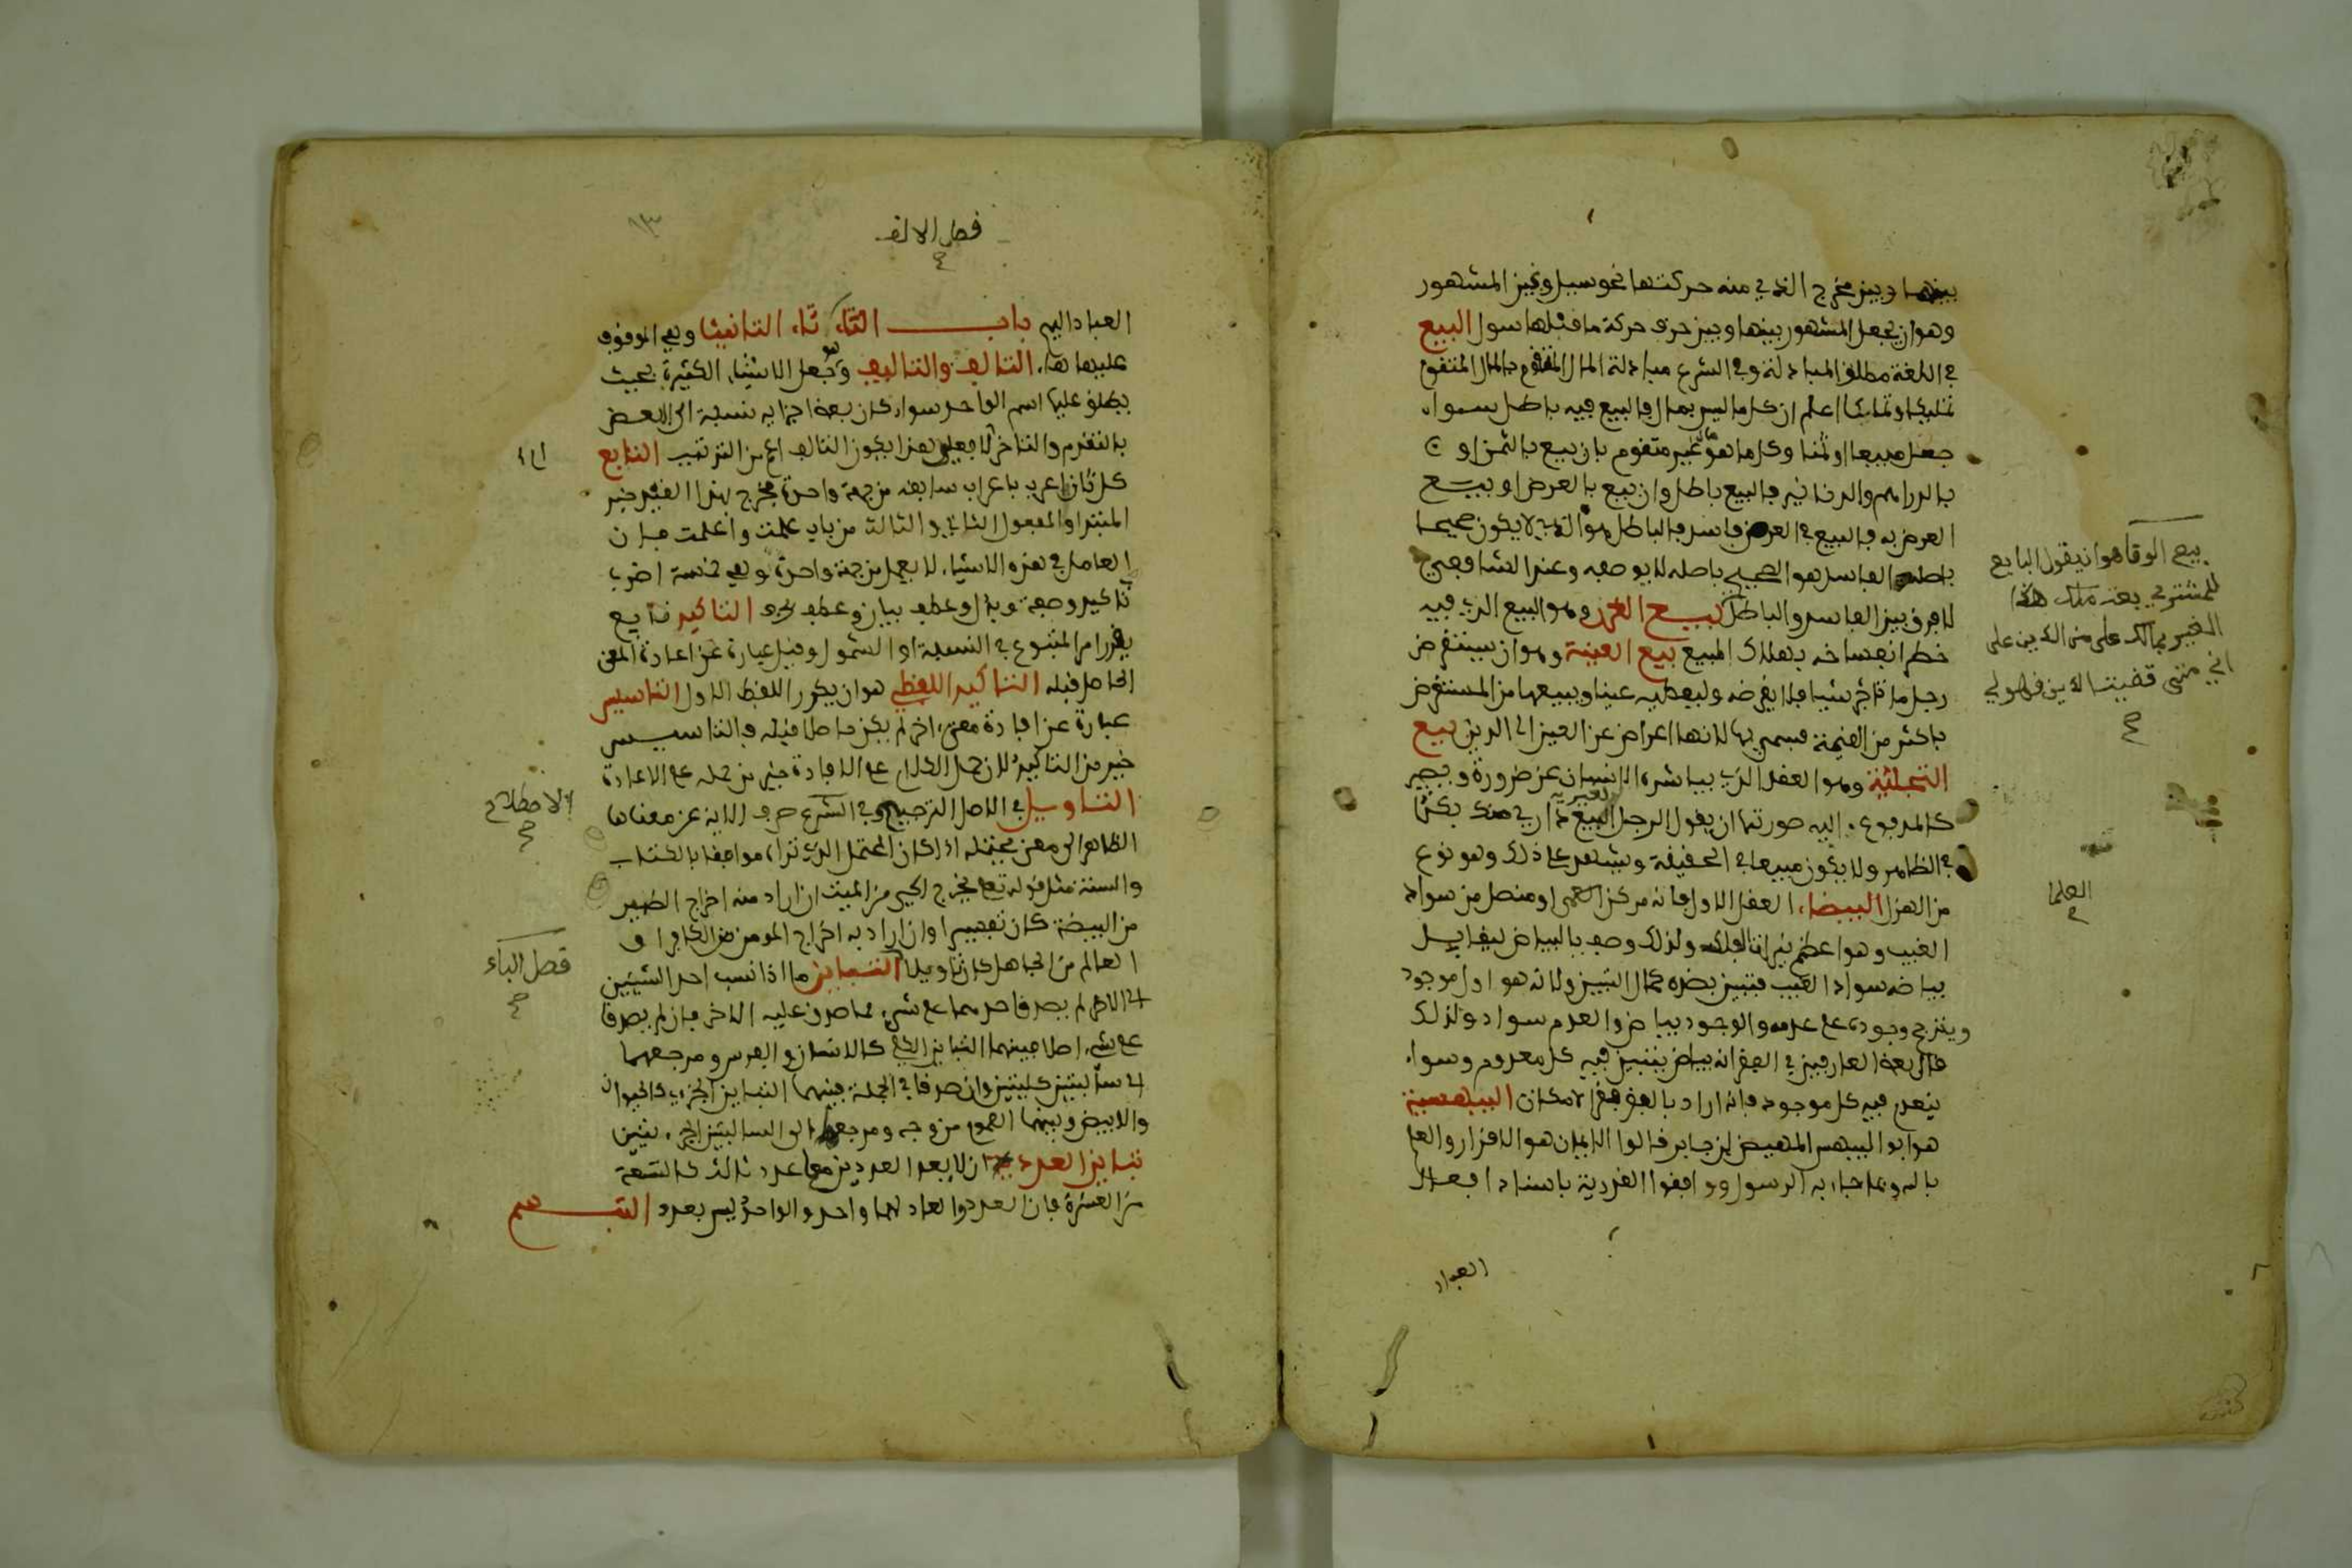 بينها وبين مخرج الذي منه حركتها نحو سيل وبين المشهور
وهو ان يجعل المشهور بينها وبين حرف حركة ما قبلها سول البيع
في اللغة مطلق المبادلة وفي الشرع مبادلة المال المتقوم بالمال المتقوم
تمليكا وتملكا اعلم ان كل ما ليس بمال فالبيع فيه باطل سواء
جعل مبيعا او ثمنا وكل ما هو مال غير متقوم بان بيع بالثمن او
بالدراهم والدنانير فالبيع باطل وان بيع بالعرض او بيع
العرض به فالبيع في العرض فاسد فالباطل هو الذي لا يكون صحيحا
باصله الفاسد هو الصحيح باصله لا بوصفه وعند الشافعي
لا فرق بين الفاسد والباطل بيع الغرر وهو البيع الذي فيه
خطر انفساخه بهلاك المبيع بيع العينة وهو ان يستقرض
رجل من تاجر شيا فلا يقرضه وليعطيه عينا ويبيعها من المستقرض
باكثر من القيمة فسمي بها لانها اعراض عن العين الى الدين بيع
التجلئة وهو العقد الذي يباشره الانسان عن ضرورة ويصير
كالمدفوع اليه صورتها ان يقول الرجل لغيره ابيع داري منك بكذا
في الظاهر ولا يكون مبيعا في الحقيقة ويشهد على ذلك وهو نوع
من الهزل البيضاء العقل الاول فانه مركز العمى او منصل من سواد
الغيب وهو اعظم نيرات الفلك ولذلك وصف بالبياض ليقابل
بياضه سواد الغيب فيتبين بضده كمال التبين ولانه هو اول موجود
ويترجح وجوده على عدمه والوجود بياض والعدم سواد ولذلك
قال بعض العارفين في الفقر انه بياض يتبين فيه كل معدوم وسواد
ينعدم فيه كل موجود فانه اراد بالفقر فقر الامكان البيهسية
هو ابو البيهس الهيصم بن جابر قالوا الايمان هو الاقرار والعلم
بالله وبما جاء به الرسول ووافقوا القدرية باسناد افعال
العباد
بيع الوفا هو ان يقول البايع
للمشتري بعت منك هذا
العين بمالك علي من الدين على
اني متى قضيت الدين فهو لي
صح
العلما
فصل الالف
صح
١٣
العباد اليهم باب التاء تاء التانيث وهي الموقوف
عليها هاء التالف والتاليف وهو جعل الاشياء الكثيرة بحيث
يطلق عليها اسم الواحد سواء كان بعض اجزايه نسبة الى البعض
بالتقدم والتاخر ام لا فعلى هذا يكون التالف اعم من الترتيب التابع
كل ثان اعرب باعراب سابقه من جهة واحدة فخرج بهذا القيد خبر
المبتدا والمفعول الثاني والثالث من باب علمت واعلمت فان
العامل في هذه الاشياء لا يعمل من جهة واحدة وهي خمسة اضرب
تاكيد وصفة وبدل وعطف بيان وعطف بحرف التاكيد تابع
يقرر امر المتبوع في النسبة او الشمول وقيل عبارة عن اعادة المعنى
الحاصل قبله التاكيد اللفظي هو ان يكرر اللفظ الاول التاسيس
عبارة عن افادة معنى اخر لم يكن حاصلا قبله فالتاسيس
خير من التاكيد لان حمل الكلام على الافادة خير من حمله على الاعادة
التاويل في الاصل الترجيح وفي الشرع صرف الاية عن معناها
الظاهر الى معنى يحتمله اذا كان المحتمل الذي تراه موافقا بالكتاب
والسنة مثل قوله تعالى يخرج الحي من الميت ان اراد منه اخراج الطير
من البيضة كان تفسيرا وان اراد به اخراج المومن من الكافر او
العالم من الجاهل كان تاويلا التباين ما اذا نسب احد الشيئين
الى الاخر لم يصدق احدهما على شيء مما صدق عليه الاخر فان لم يصدقا
على شيء اصلا فبينهما التباين الكلي كالانسان والفرس ومرجعهما
الى سالبتين كليتين وان صدقا في الجملة فبينهما التباين الجزءي كالحيوان
والابيض وبينهما العموم من وجه ومرجعهما الى السالبتين الجزءيتين
تباين العدد ان لا يعد العددين معا عدد ثالث كالتسعة
من العشرة فان العدد العاد لهما واحد والواحد ليس بعدد التبسم
الاصطلاح
صح
فصل الباء
صح